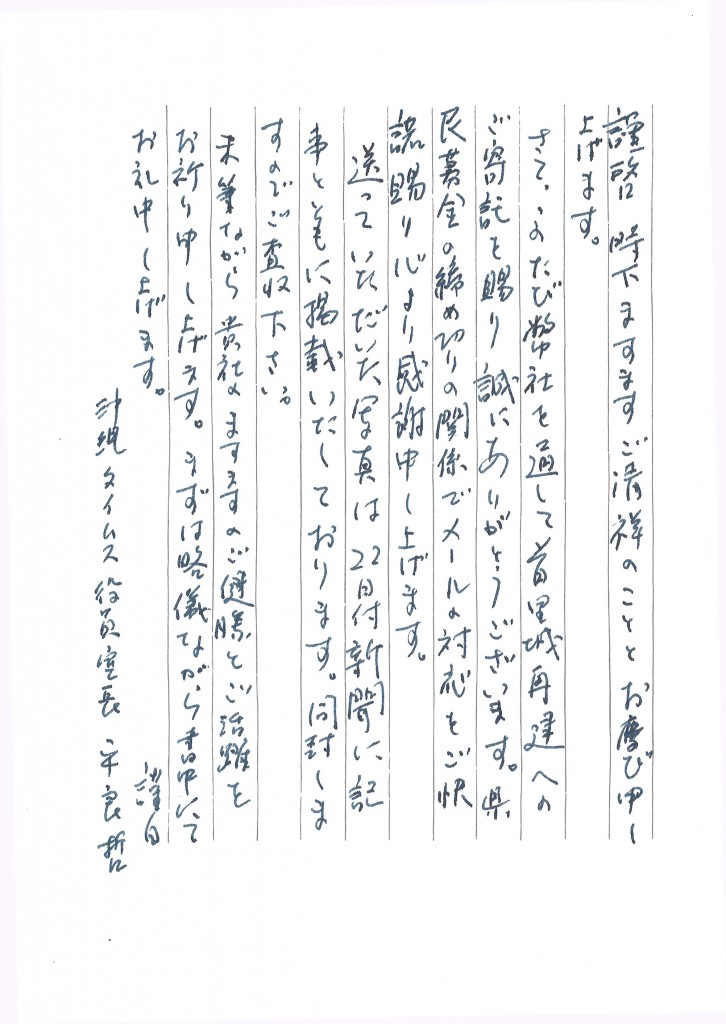 謹啓 時下ますますご清祥のこととお慶び申し
上げます。
さて、このたび弊社を通して首里城再建への
ご寄託を賜り誠にありがとうございます。県
民募金の締め切りの関係でメールの対応をご快
諾賜り心より感謝申し上げます。
送っていただいた写真は22日付新聞に記
事とともに掲載いたしております。同封しま
すのでご査収下さい。
末筆ながら貴社のますますのご健勝とご活躍を
お祈り申し上げます。まずは略儀ながら書中にて
お礼申し上げます。
謹白
沖縄タイムス役員室長 平良哲